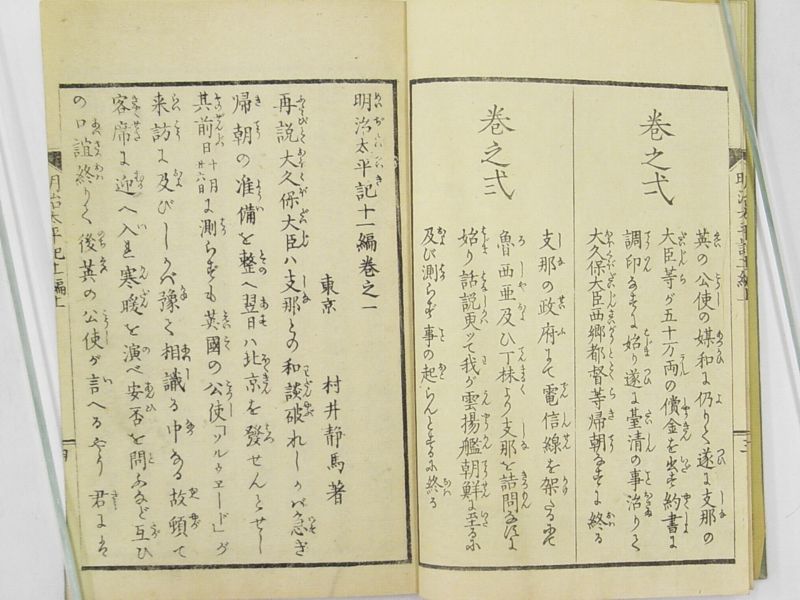 卷之弌
英の公使の媒和に仍りて遂に支那の
大臣等が五十万両の償金を出す約書に
調印なすに始り遂に臺清の事治りて
大久保大臣西郷都督等帰朝なすに終る
卷之弍
支那の政府にて電信線を架たるにて
魯西亜及ひ丁抹より支那を詰問なすに
始り話説更ッて我が雲揚艦朝鮮に至るに
及び測らず事の起らんとするに終る
明治太平記十一編卷之一
東京 村井静馬著
再説大久保大臣ハ支那との和談破れしかバ急ぎ
帰朝の准備を整へ翌日ハ北京を發せんとせし
其前日十月廿六日に測らずも英國の公使「ソルウエード」が
来訪に及びしかバ豫て相識る中なる故頓て
客席に迎へ入れ寒暖を演べ安否を問ふなど互ひ
の口誼終りて後英の公使が言へるやう君には
明治太平記十一編上